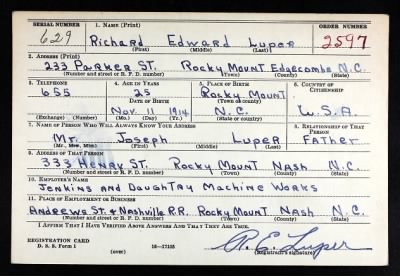 SERIAL NUMBER 1. NAME (Print) ORDER NUMBER
629 Richard Edward Luper 2597
(First) (Middle) (Last)
2. ADDRESS (Print)
233 Parker St. Rocky Mount Edgecombe N.C.
(Number and street or R. F. D. number) (Town) (County) (State)
3. TELEPHONE 4. AGE IN YEARS 5. PLACE OF BIRTH 6. COUNTRY OF CITIZENSHIP
655 25 Rocky Mount
DATE OF BIRTH (Town or county)
Nov. 11 1914 N.C. U.S.A.
(Exchange) (Number) (Mo.) (Day) (Yr.) (State or country)
7. NAME OF PERSON WHO WILL ALWAYS KNOW YOUR ADDRESS 8. RELATIONSHIP OF THAT PERSON
Mr. Joseph Luper Father
(Mr., Mrs., Miss) (First) (Middle) (Last)
9. ADDRESS OF THAT PERSON
333 Henry St. Rocky Mount Nash N.C.
(Number and street or R. F. D. number) (Town) (County) (State)
10. EMPLOYER'S NAME
Jenkins and Daughtry Machine Works
11. PLACE OF EMPLOYMENT OR BUSINESS
Andrews St. & Nashville R.R. Rocky Mount Nash N.C.
(Number and street or R. F. D. number) (Town) (County) (State)
I AFFIRM THAT I HAVE VERIFIED ABOVE ANSWERS AND THAT THEY ARE TRUE.
REGISTRATION CARD R. E. Luper
D. S. S. Form 1 (over) 16—17105 (Registrant's signature)